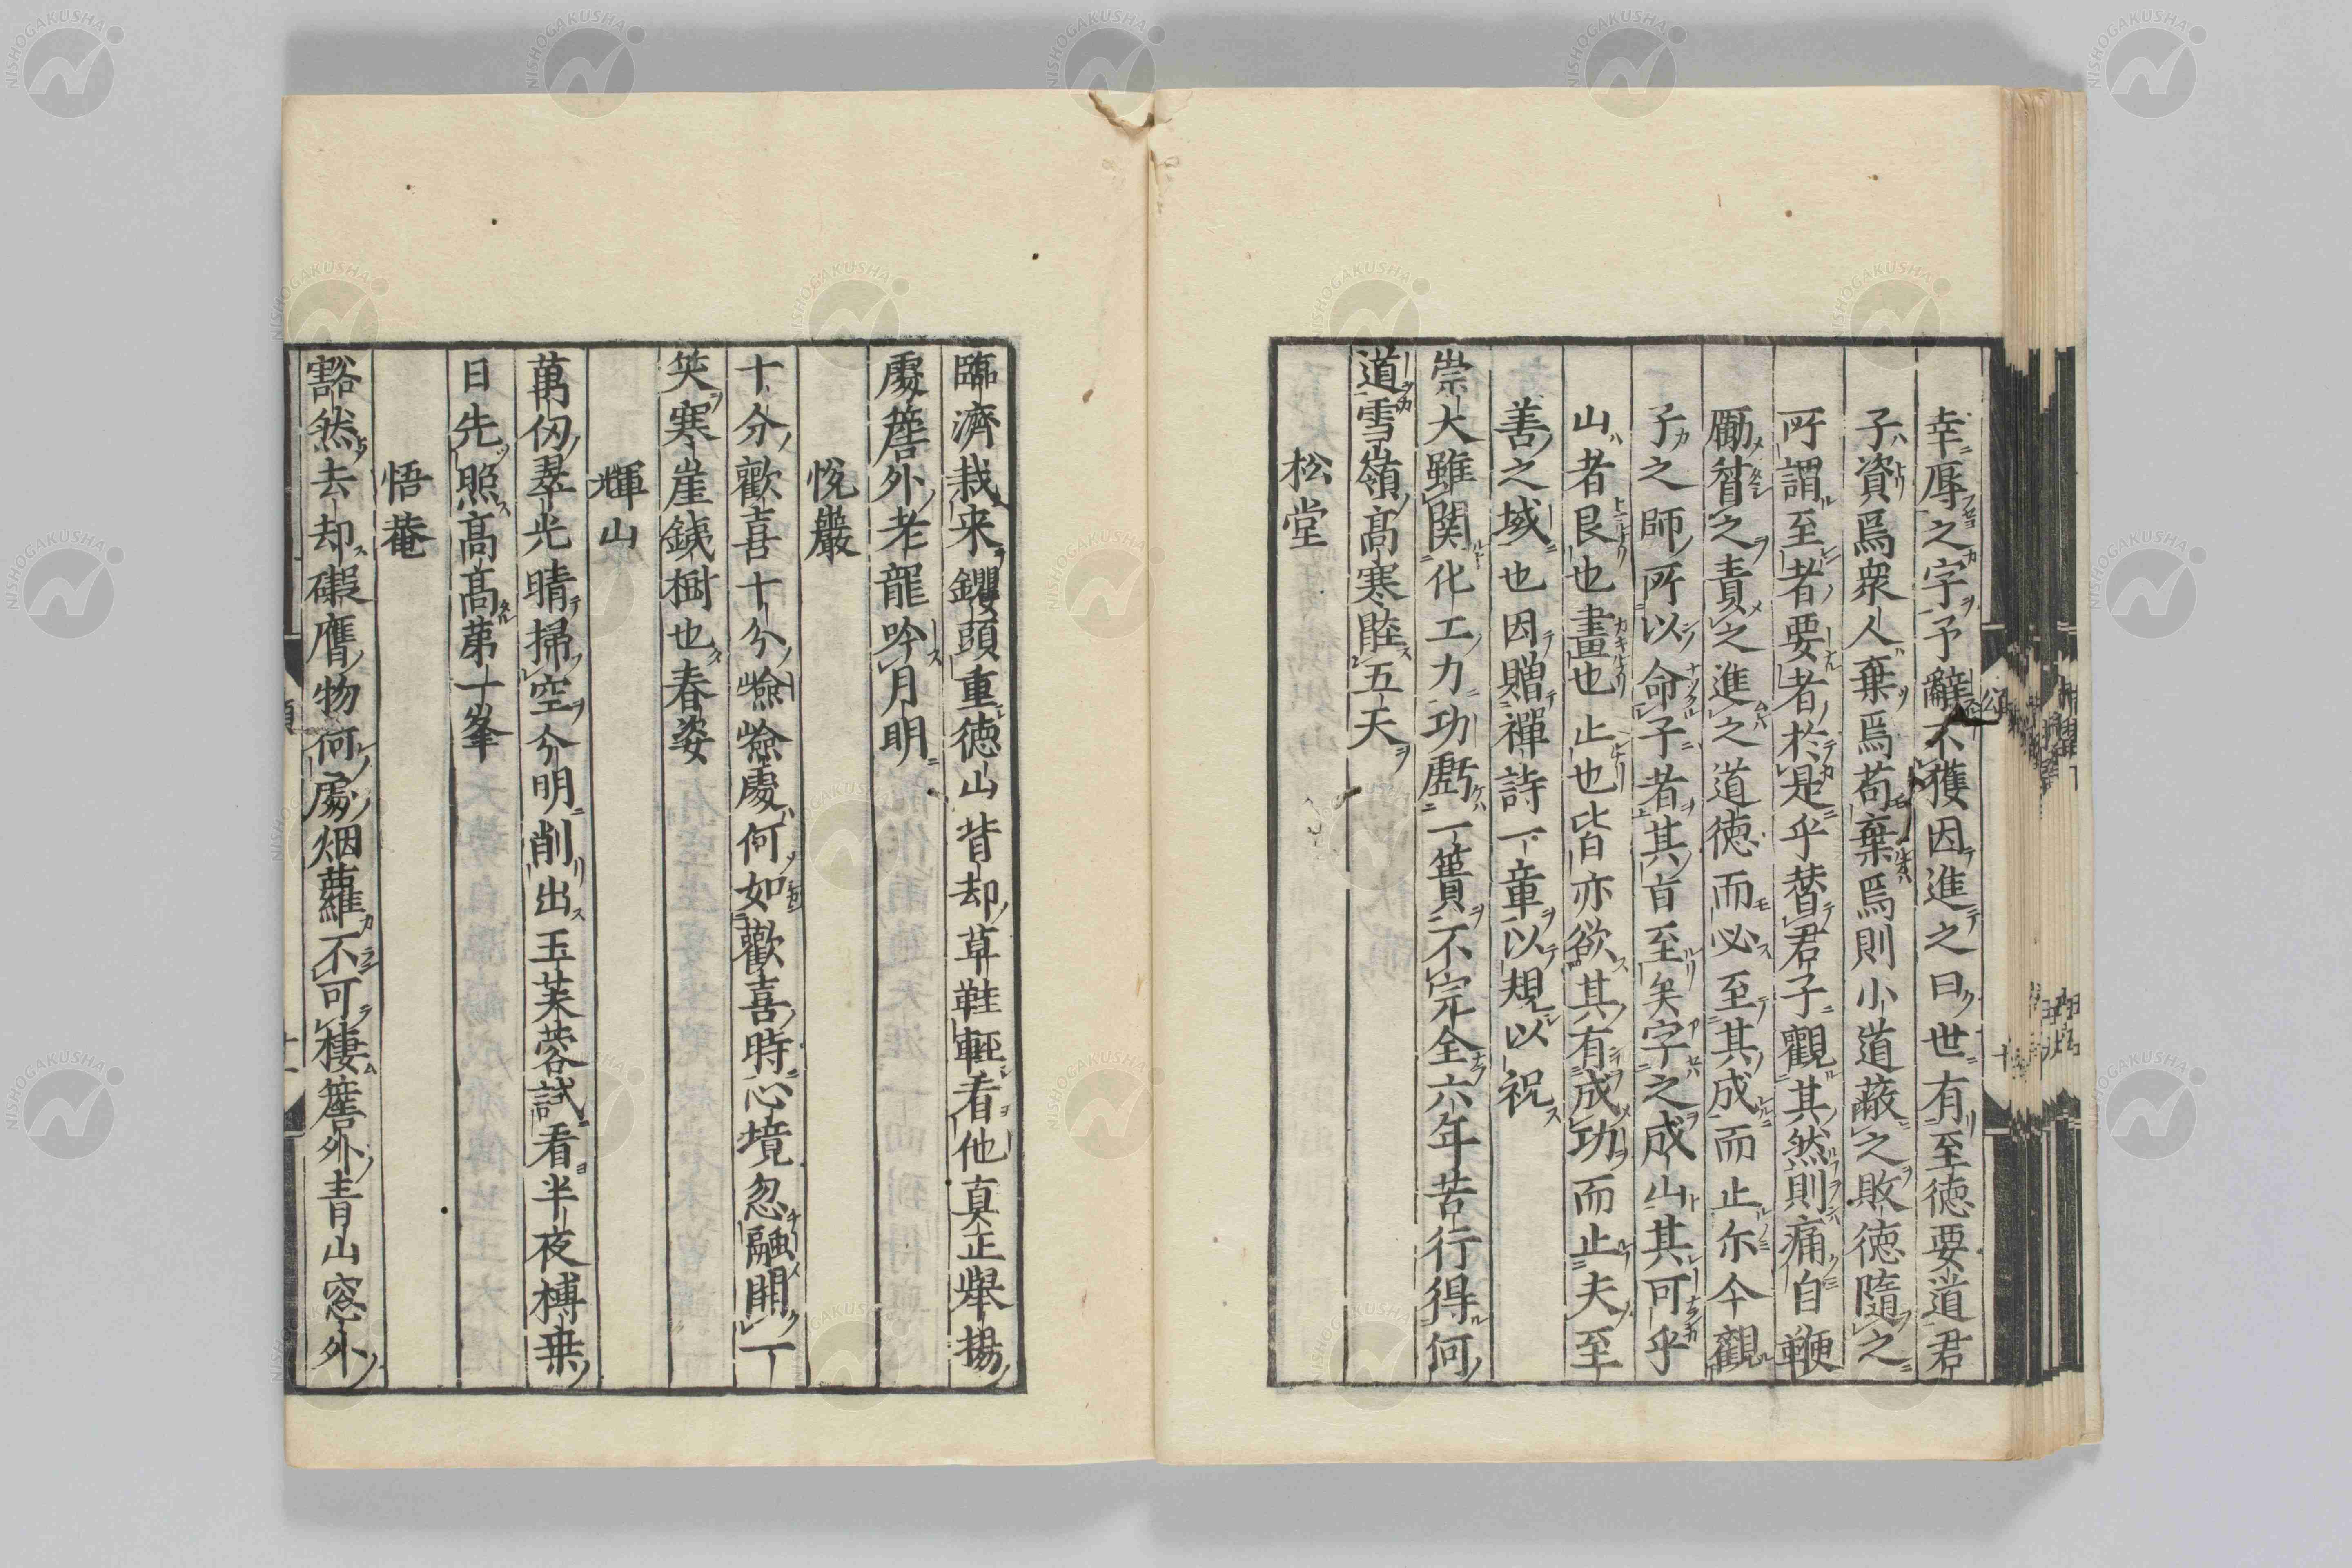 幸辱之字予辭不獲因進之曰世有至德要道君
子資焉衆人棄焉苟棄焉則小道蔽之敗德隨之
所謂至者要者於是乎替君子觀其然則痛自鞭
勵督之責之進之道德而必至其成而止尓今觀
子之師所以命子者其旨至矣字之成山其可乎
山者艮也畫也止也皆亦欲其有成功而止夫至
善之域也因贈禪詩一章以規以祝
崇大雖関化工力功虧一簣不完全六年苦行得何
道雪嶺高寒睦五天
松堂
臨濟栽來钁頭重德山背却草鞋輕看他真正舉揚
處簷外老龍吟月明
悅巖
十分歡喜十分嶮嶮處何如歡喜時心境忽融開一
笑寒崖銕樹也春姿
輝山
萬仭翠光晴掃空分明削出玉芙蓉試看半夜榑桒
日先照高高第一峯
悟菴
豁然去却礙膺物何處烟蘿不可棲簷外青山窓外